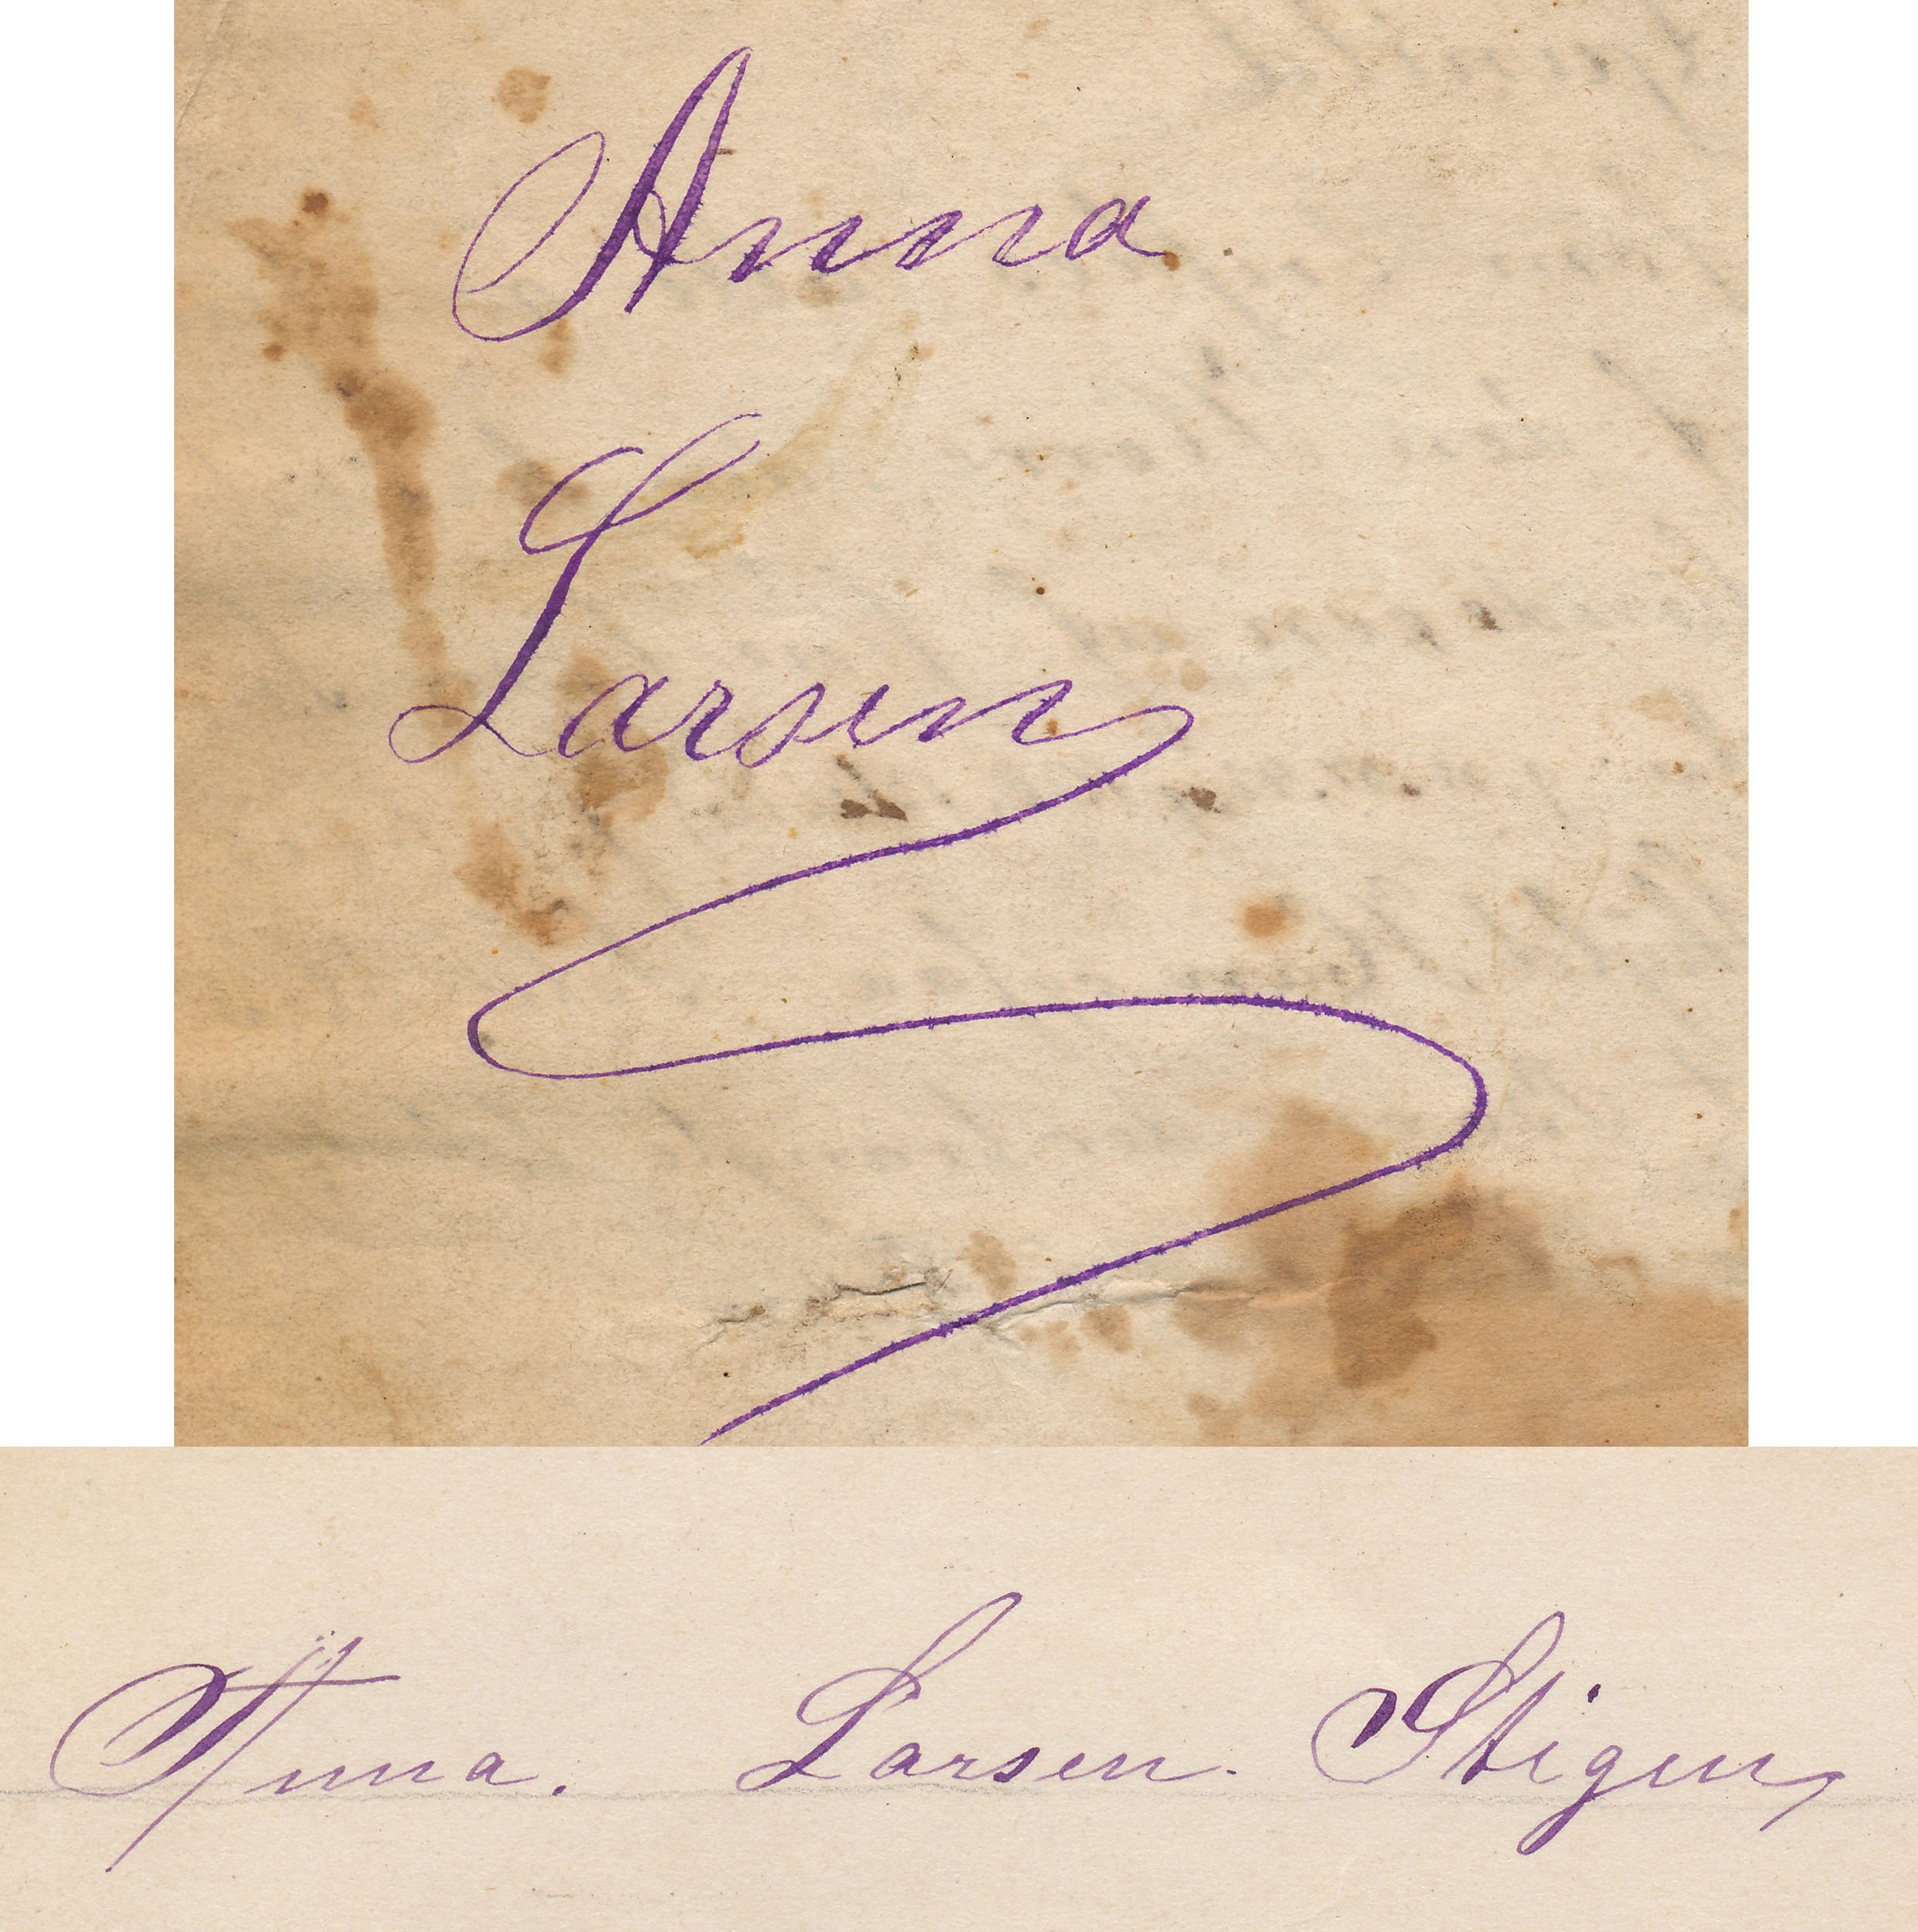 Anna
Larsen
Anna. Larsen. Stigen